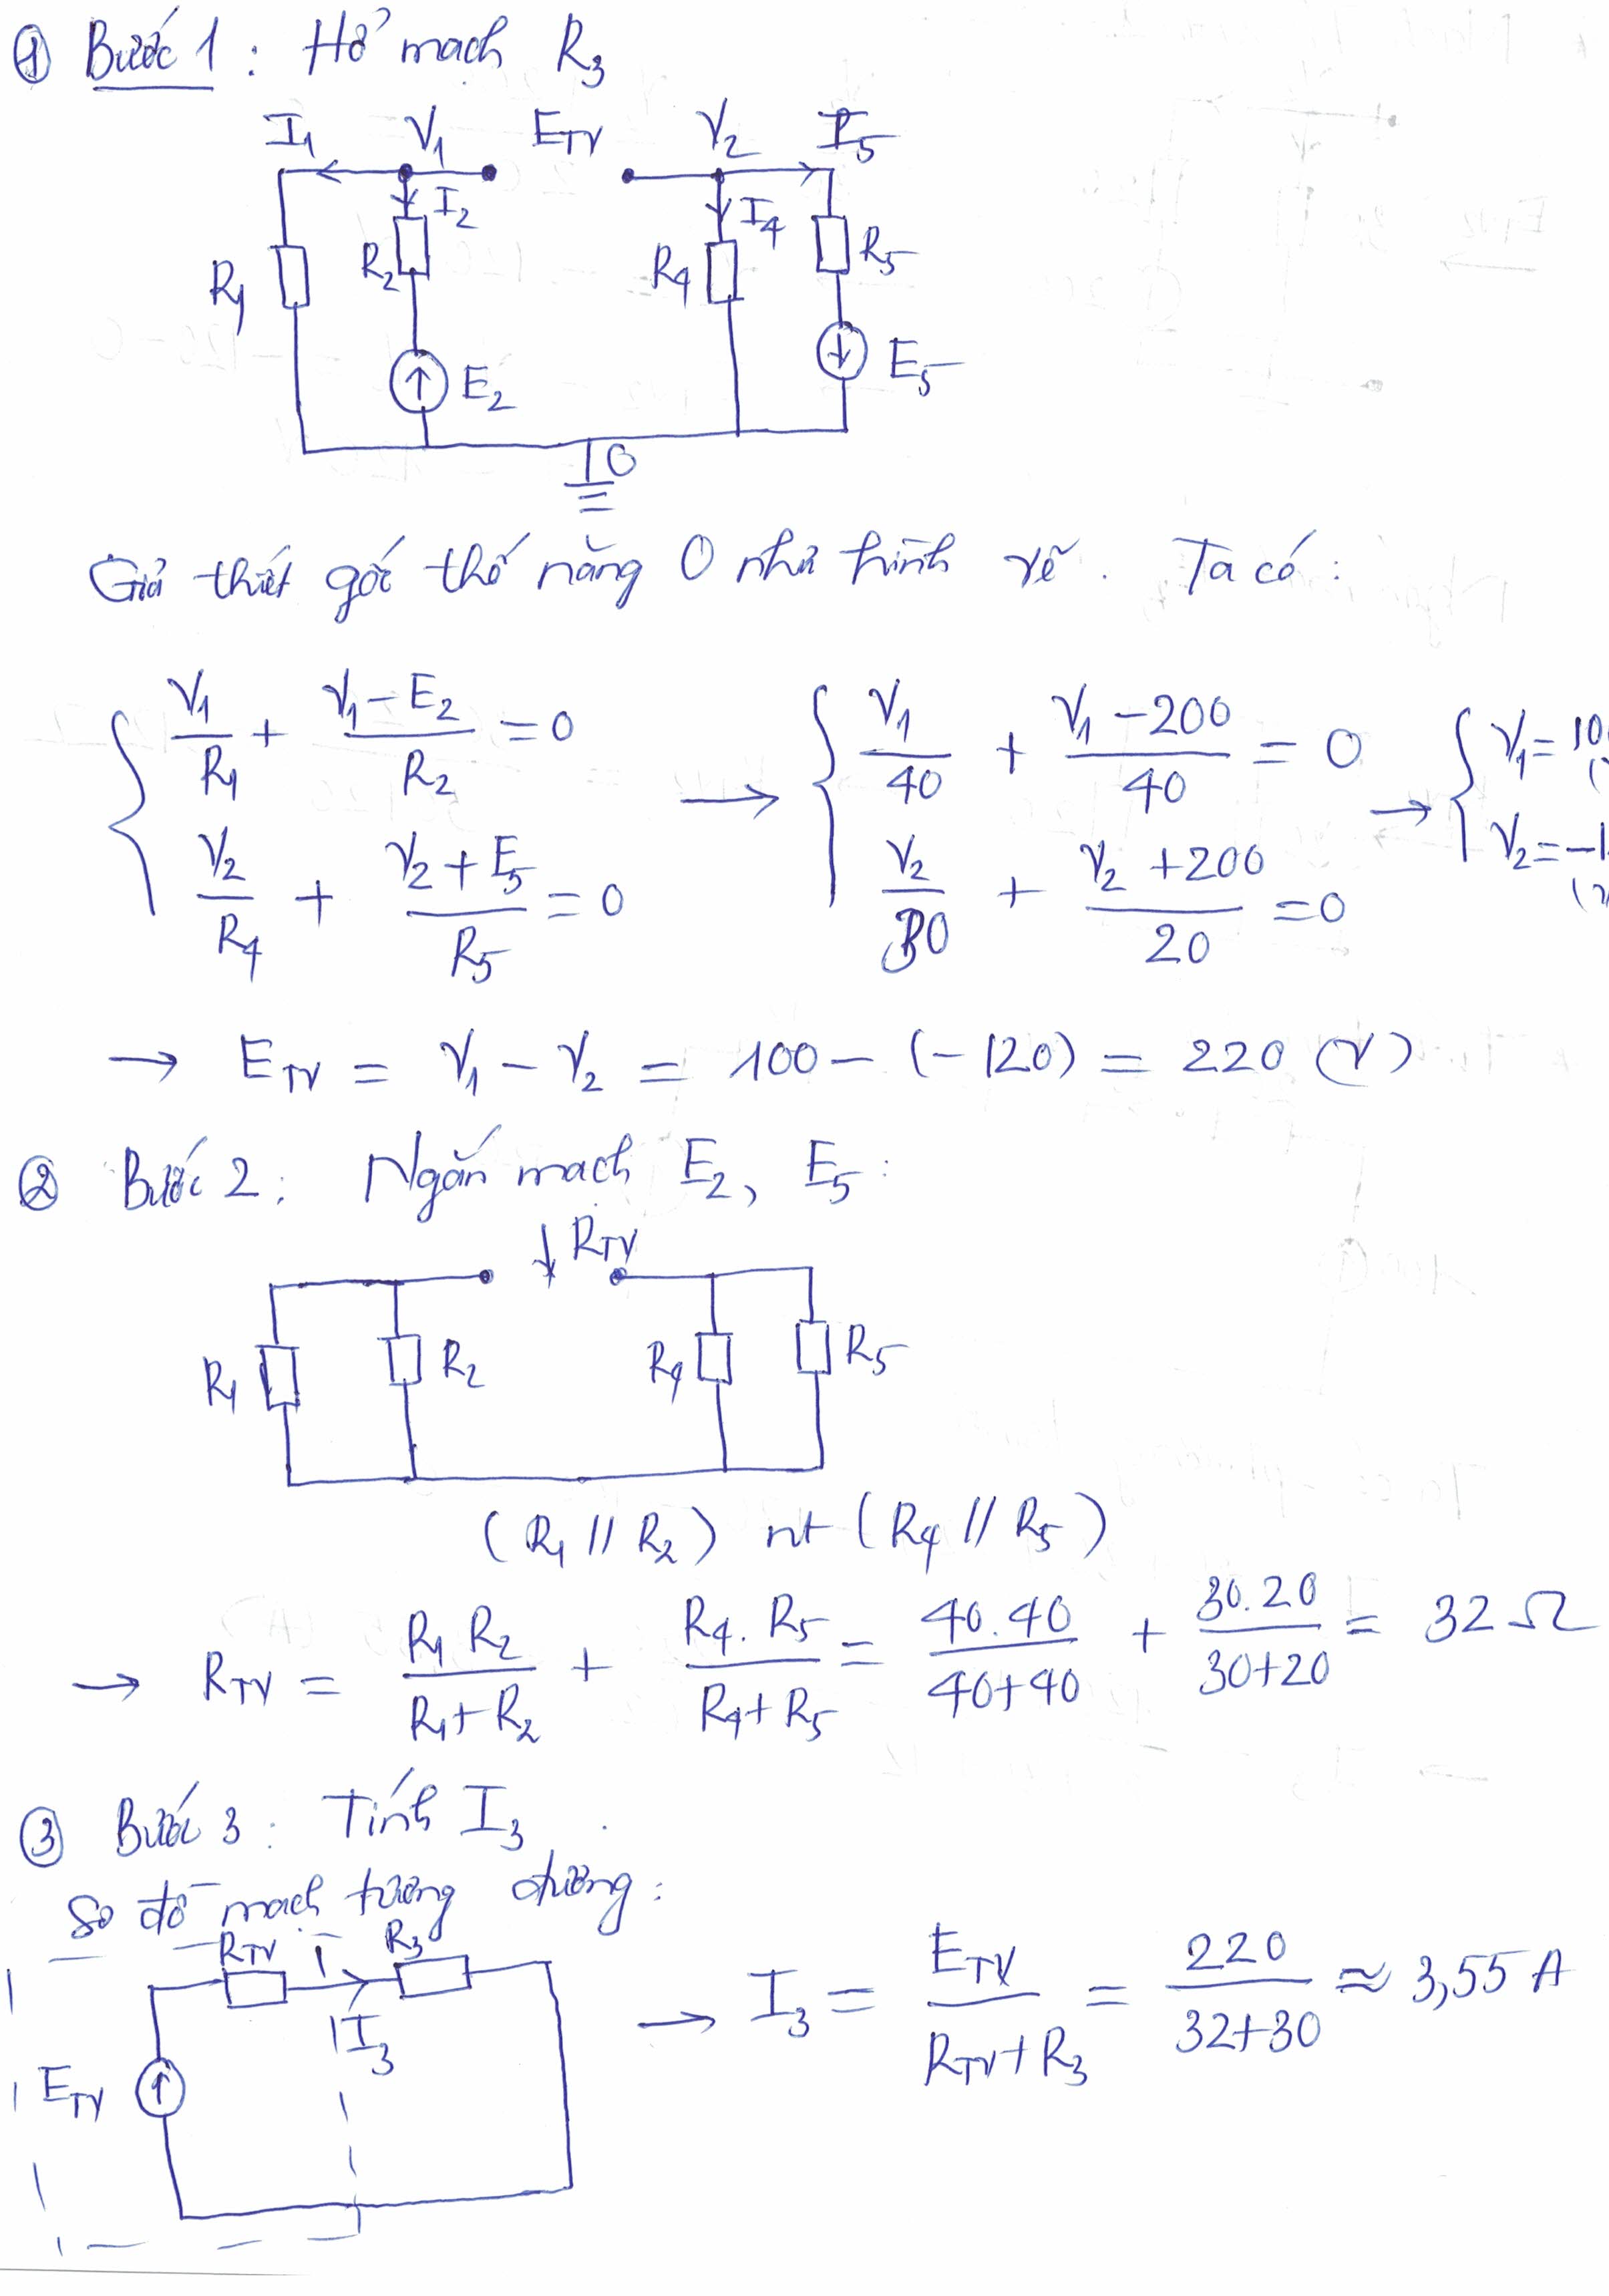 ① Bước 1 : Hở mạch R₃
I₁ V₁ E_TV V₂ I₅
I₂ I₄
R₁ R₂ R₄ R₅
E₂ E₅
0
Giả thiết gốc thế năng 0 như hình vẽ. Ta có :
{ V₁/R₁ + (V₁ - E₂)/R₂ = 0 → { V₁/40 + (V₁ - 200)/40 = 0 → { V₁ = 10
{ V₂/R₄ + (V₂ + E₅)/R₅ = 0 { V₂/30 + (V₂ + 200)/20 = 0 { V₂ = -1
→ E_TV = V₁ - V₂ = 100 - (-120) = 220 (V)
② Bước 2 : Ngắn mạch E₂, E₅ :
↓ R_TV
R₁ R₂ R₄ R₅
(R₁ // R₂) nt (R₄ // R₅)
→ R_TV = R₁ R₂/(R₁ + R₂) + R₄ . R₅/(R₄ + R₅) = 40 . 40/(40 + 40) + 30 . 20/(30 + 20) = 32 Ω
③ Bước 3 : Tính I₃
Sơ đồ mạch tương đương :
R_TV R₃
I₃
E_TV
→ I₃ = E_TV/(R_TV + R₃) = 220/(32 + 30) ≈ 3,55 A